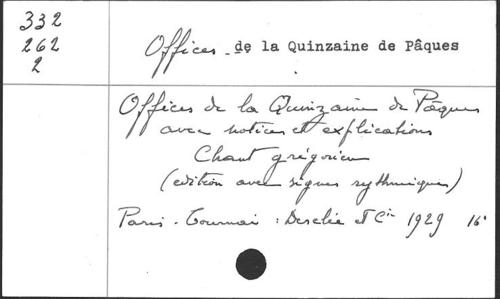 332
262
2
Offices de la Quinzaine de Pâques
Offices de la Quinzaine de Pâques
avec notices et explications
Chant grégorien
(edition avec signes rythmiques)
Paris - Tournai : Desclée et Cie 1929 16°